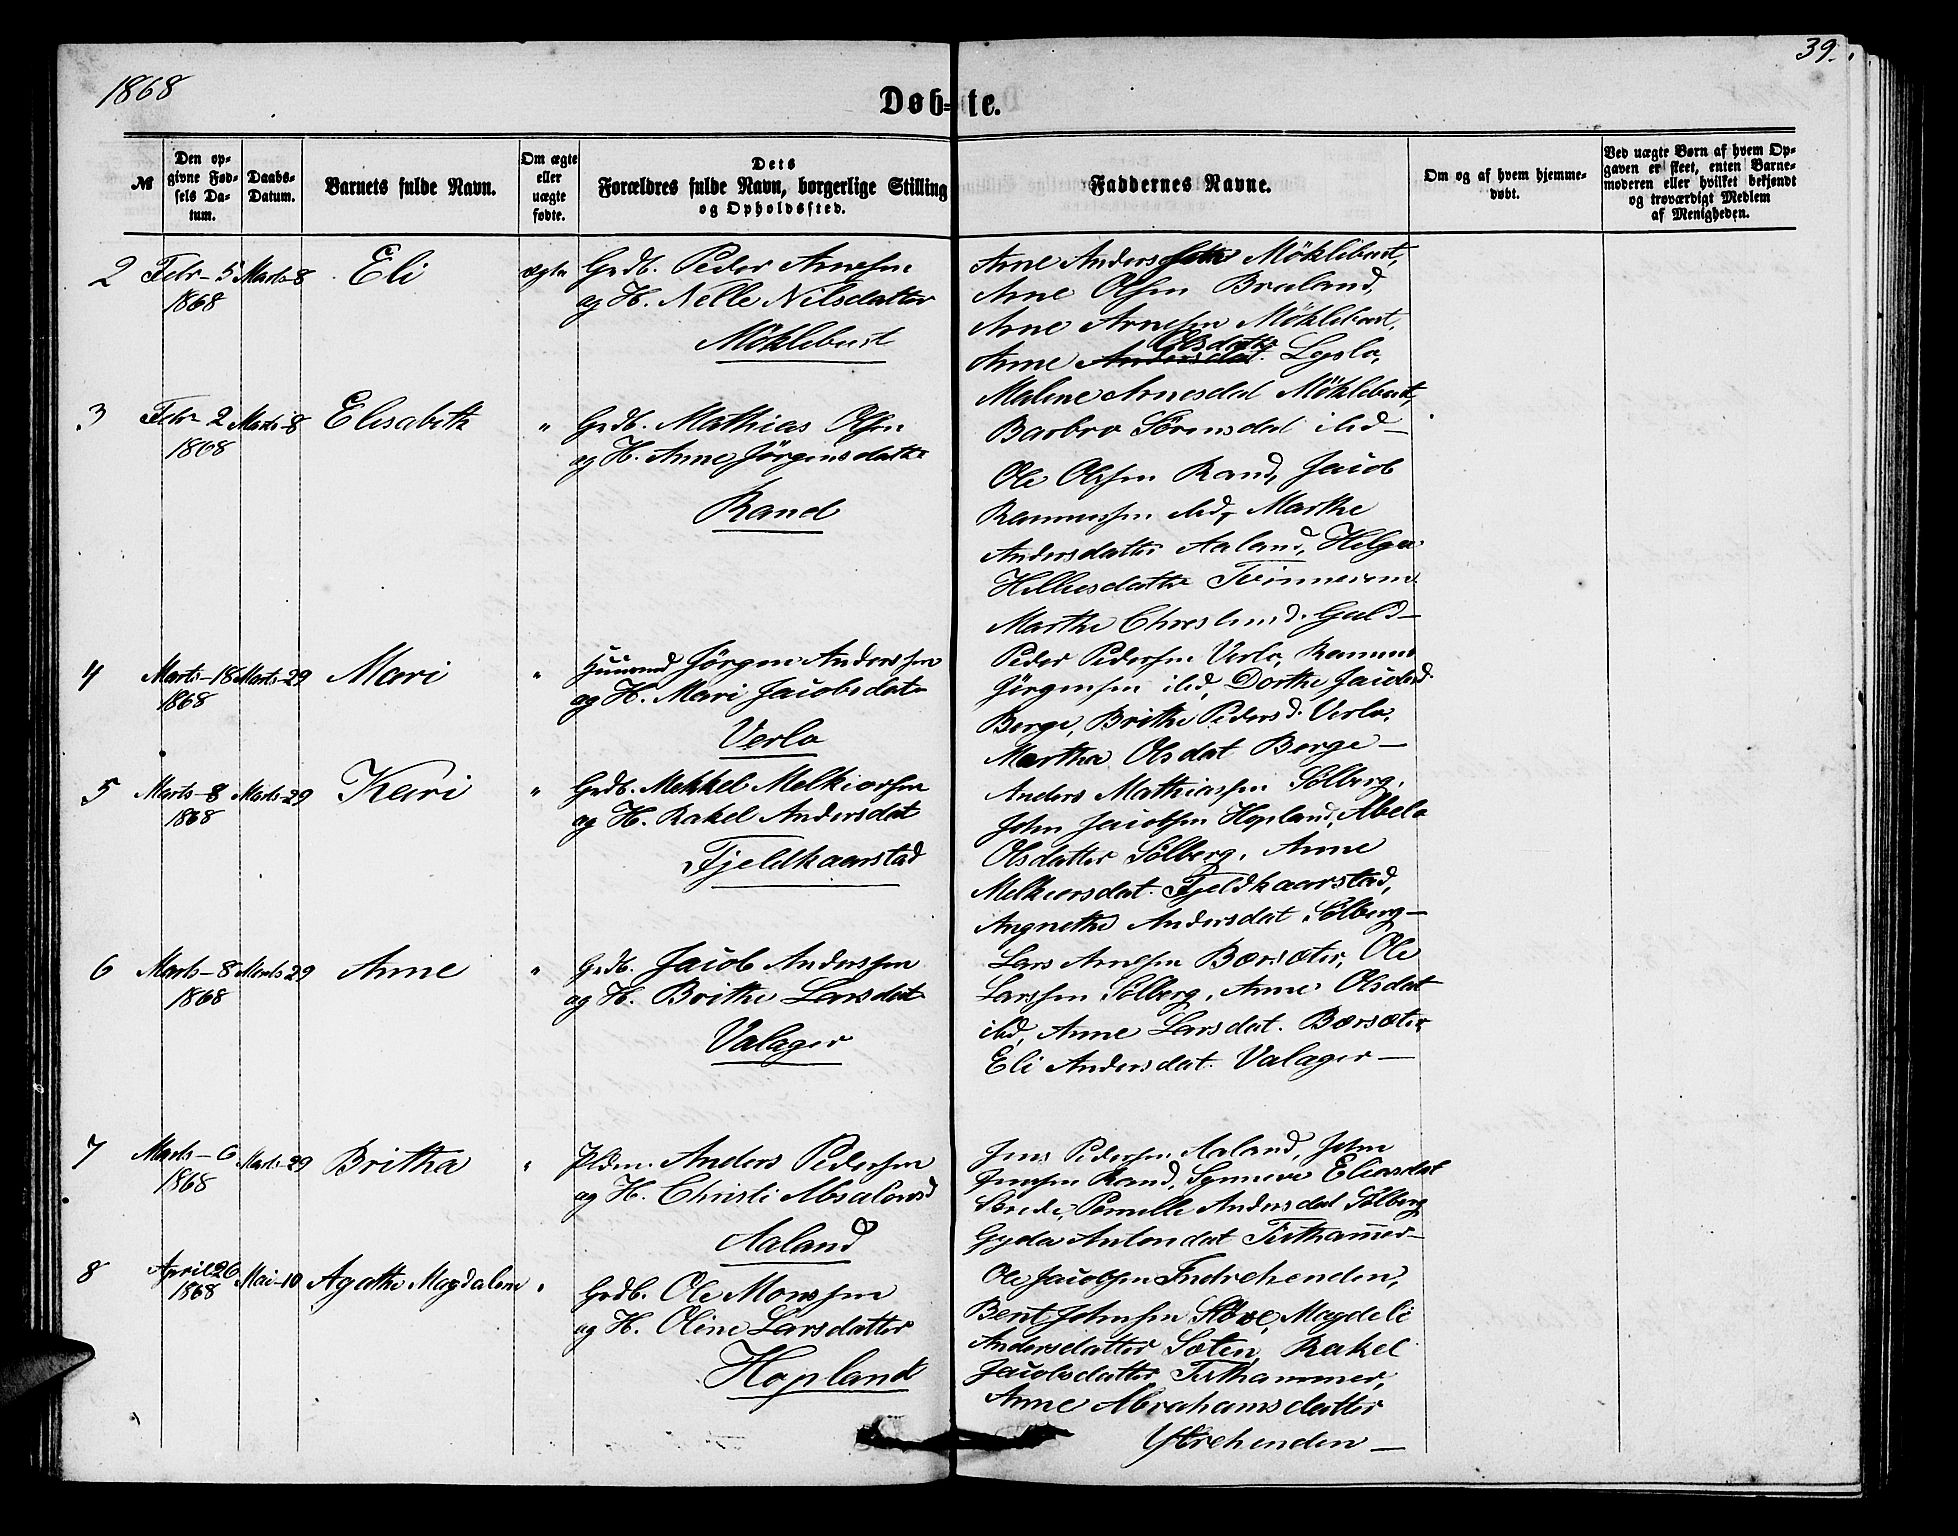 1868
39.
Døbte.
№
Den opgivne Fødsels Datum.
Daabs-Datum.
Barnets fulde Navn.
Om ægte eller uægte fødte.
Dets Forældres fulde Navn, borgerlige Stilling og Opholdssted.
Faddernes Navne.
Om og af hvem hjemmedøbt.
Ved uægte Børn af hvem Opgaven er skeet, enten Barnemoderen eller hvilket bekjendt og troværdigt Medlem af Menigheden.
2 Febr 5 1868 Marts 8 Eli ægte
Grdb. Peder Arnesen
og H. Nelle Nilsdatter
Möklebust
Arne Anders Möklebust,
Arne Olsen Braland,
Arne Arnesen Möklebust,
Anne Olsdatter Lyslo,
Malene Arnesdat Möklebust,
Barbro Sörensdat ibid-
3 Febr 2 1868 Marts 8 Elisabeth "
Grdb. Mathias Olsen
og H. Anne Jörgensdatter
Rand
Ole Olsen Rand, Jacob
Rasmussen ibid, Marthe
Andersdatter Aaland, Helga
Marthe
4 Marts-18 1868 Marts-29 Mari "
Huusmd Jørgen Anderssen
og H. Mari Jacobsdat
Verlo
Peder Pedersen Verlo, Rasmus
Jørgensen ibd, Dorthe Jacobsd.
Berge, Brithe Pedersd. Verlo,
Martha Olsdat Berge-
5 Marts-8 1868 Marts-29 Kari "
Grdb. Mekkel Melkiorsen
og H. Rakel Andersdat
Fjeldkaarstad
Anders Mathiassen Sölberg,
John Jacobsen Hopland, Abelo
Olsdatter Sölberg, Anne
Melkiorsdat. Fjeldkaarstad,
Angnethe Andersdat Sölberg-
6 Marts-8 1868 Marts 29 Anne "
Grdb. Jacob Anderssen
og H. Brithe Larsdat
Valager
Lars Arnesen Bærsæter, Ole
Larssen Sölberg, Anne Olsdat
ibd, Anne Larsdat. Bærsæter,
Eli Andersdat. Valager-
7 Marts-6 1868 Marts-29 Britha "
Pldm. Anders Pedersen
og H. Christi Absalonsd
Aaland
Jens Pedersen Aaland, John
Jensen Rand, Synneve Eliasdat
Pernille Andersdat Sölberg
Gyda Antondat Firthammer-
8 April 26 1868 Mai-10 Agathe Magdalene "
Grdb. Ole Monssen
og H. Oline Larsdatter
Hopland
Ole Jacobsen Indrehenden,
Bent Johnsen Støve, Magdeli
Andersdatter Sæten, Rakel
Jacobsdatter Firthammer,
Anne Abrahamsdatter
Ytrehenden-